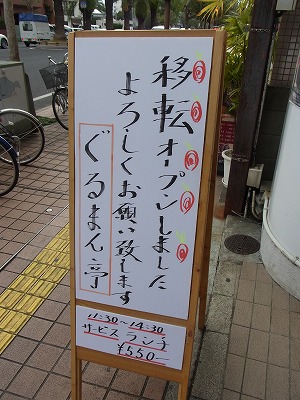 移転オープンしました
よろしくお願い致します
ぐるまん亭
11:30〜14:30
サービスランチ
¥550-